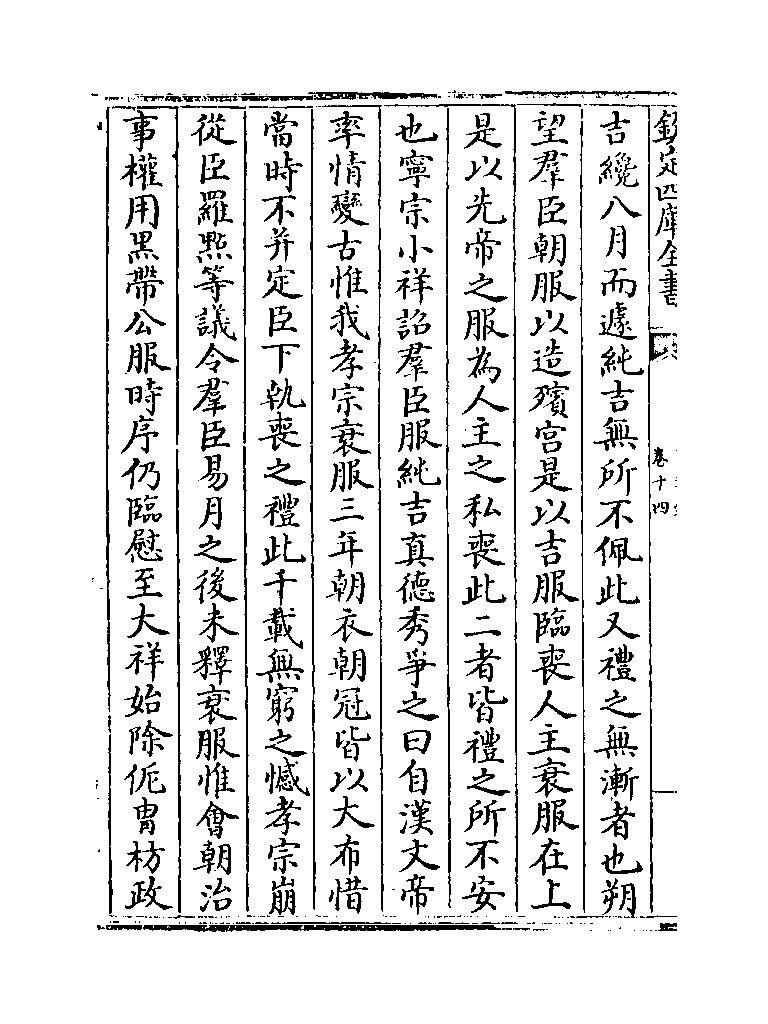 欽定四庫全書
卷十四
吉纔八月而遽純吉無所不佩此又禮之無漸者也朔
望羣臣朝服以造殯宫是以吉服臨喪人主衰服在上
是以先帝之服為人主之私喪此二者皆禮之所不安
也寧宗小祥詔羣臣服純吉真德秀爭之曰自漢文帝
率情變古惟我孝宗衰服三年朝衣朝冠皆以大布惜
當時不并定臣下執喪之禮此千載無窮之憾孝宗崩
從臣羅㸃等議令羣臣易月之後未釋衰服惟㑹朝治
事權用黒帶公服時序仍臨慰至大祥始除侂胄枋政